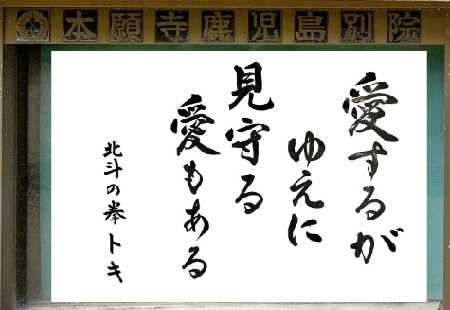 本願寺鹿児島別院
愛するが
ゆえに
見守る
愛もある
北斗の拳 トキ